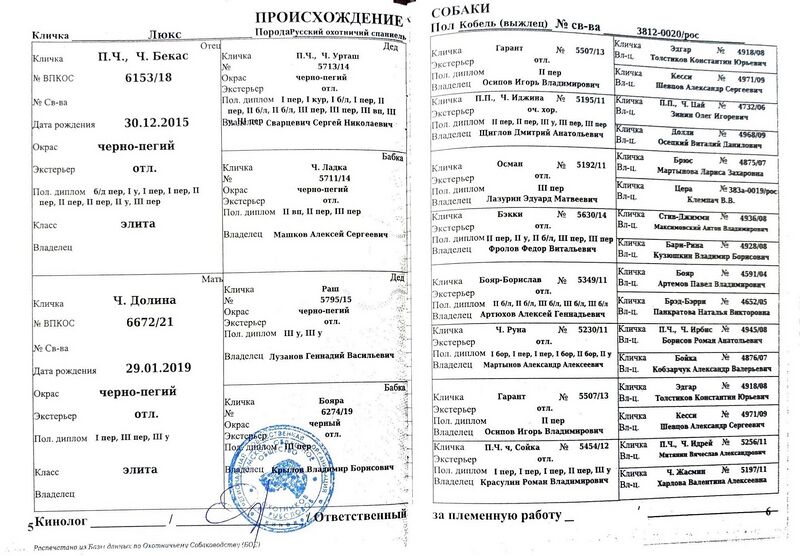 ПРОИСХОЖДЕНИЕ
Кличка Люкс Порода Русский охотничий спаниель
Отец
Кличка П.Ч., Ч. Бекас
№ ВПКОС 6153/18
№ Св-ва
Дата рождения 30.12.2015
Окрас черно-пегий
Экстерьер отл.
Пол. диплом б/д пер, I у, I пер, I пер, II
пер, II пер, II пер, II у, III пер
Класс элита
Владелец
Мать
Кличка Ч. Долина
№ ВПКОС 6672/21
№ Св-ва
Дата рождения 29.01.2019
Окрас черно-пегий
Экстерьер отл.
Пол. диплом I пер, III пер, III у
Класс элита
Владелец
Дед
Кличка П.Ч., Ч. Урташ
№ 5713/14
Окрас черно-пегий
Экстерьер отл.
Пол. диплом I пер, I кур, I б/л, I пер, II
пер, II б/л, II б/л, III пер, III пер, III вп, III
у, III пер
Владелец Сварцевич Сергей Николаевич
Бабка
Кличка Ч. Ладка
№ 5711/14
Окрас черно-пегий
Экстерьер отл.
Пол. диплом II вп, II пер, III пер
Владелец Машков Алексей Сергеевич
Дед
Кличка Раш
№ 5795/15
Окрас черно-пегий
Экстерьер отл.
Пол. диплом III у, III у
Владелец Лузанов Геннадий Васильевич
Бабка
Кличка Бояра
№ 6274/19
Окрас черный
Экстерьер отл.
Пол. диплом III пер
Владелец Крылов Владимир Борисович
5 Кинолог / / Ответственный
Распечатано из Базы данных по Охотничьему Собаководству (БОС)
СОБАКИ
Пол Кобель (выжлец) № св-ва 3812-0020/рос
Кличка Гарант № 5507/13
Экстерьер отл.
Пол. диплом II пер
Владелец Осипов Игорь Владимирович
Кличка П.П., Ч. Иджина № 5195/11
Экстерьер оч. хор.
Пол. диплом II пер, II пер, III у, III пер, III пер
Владелец Щиглов Дмитрий Анатольевич
Кличка Осман № 5192/11
Экстерьер отл.
Пол. диплом III пер
Владелец Лазурин Эдуард Матвеевич
Кличка Бэкки № 5630/14
Экстерьер отл.
Пол. диплом II пер, II у, II б/л, III пер, III пер
Владелец Фролов Федор Витальевич
Кличка Бояр-Борислав № 5349/11
Экстерьер отл.
Пол. диплом II б/л, II б/л, III б/л, III б/л, III б/л
Владелец Артюхов Алексей Геннадьевич
Кличка Ч. Руна № 5230/11
Экстерьер отл.
Пол. диплом I бор, I пер, I пер, I бор, II бор, II у
Владелец Мартынов Александр Алексеевич
Кличка Гарант № 5507/13
Экстерьер отл.
Пол. диплом II пер
Владелец Осипов Игорь Владимирович
Кличка П.П. ч, Сойка № 5454/12
Экстерьер отл.
Пол. диплом I пер, I пер, I пер, II пер, II пер, III у
Владелец Красулин Роман Владимирович
Кличка Эдгар № 4918/08
Вл-ц. Толстиков Константин Юрьевич
Кличка Кесси № 4971/09
Вл-ц. Шевцов Александр Сергеевич
Кличка П.Ч., Ч. Цай № 4732/06
Вл-ц. Зинин Олег Игоревич
Кличка Долли № 4968/09
Вл-ц. Осецкий Виталий Данилович
Кличка Брюс № 4875/07
Вл-ц. Мартынова Лариса Захаровна
Кличка Цера № 383а-0019/рос
Вл-ц. Клемпач В.В.
Кличка Стив-Джимми № 4936/08
Вл-ц. Максимовский Антон Владимирович
Кличка Бари-Рина № 4928/08
Вл-ц. Кузюшкин Владимир Борисович
Кличка Бояр № 4591/04
Вл-ц. Артемов Павел Владимирович
Кличка Брэд-Бэрри № 4652/05
Вл-ц. Панкратова Наталья Викторовна
Кличка П.Ч., Ч. Ирбис № 4945/08
Вл-ц. Борисов Роман Анатольевич
Кличка Бойка № 4876/07
Вл-ц. Кобзарчук Александр Валерьевич
Кличка Эдгар № 4918/08
Вл-ц. Толстиков Константин Юрьевич
Кличка Кесси № 4971/09
Вл-ц. Шевцов Александр Сергеевич
Кличка П.Ч., Ч. Идрей № 5256/11
Вл-ц. Митянин Вячеслав Александрович
Кличка Ч. Жасмин № 5197/11
Вл-ц. Харлова Валентина Алексеевна
за племенную работу / 6